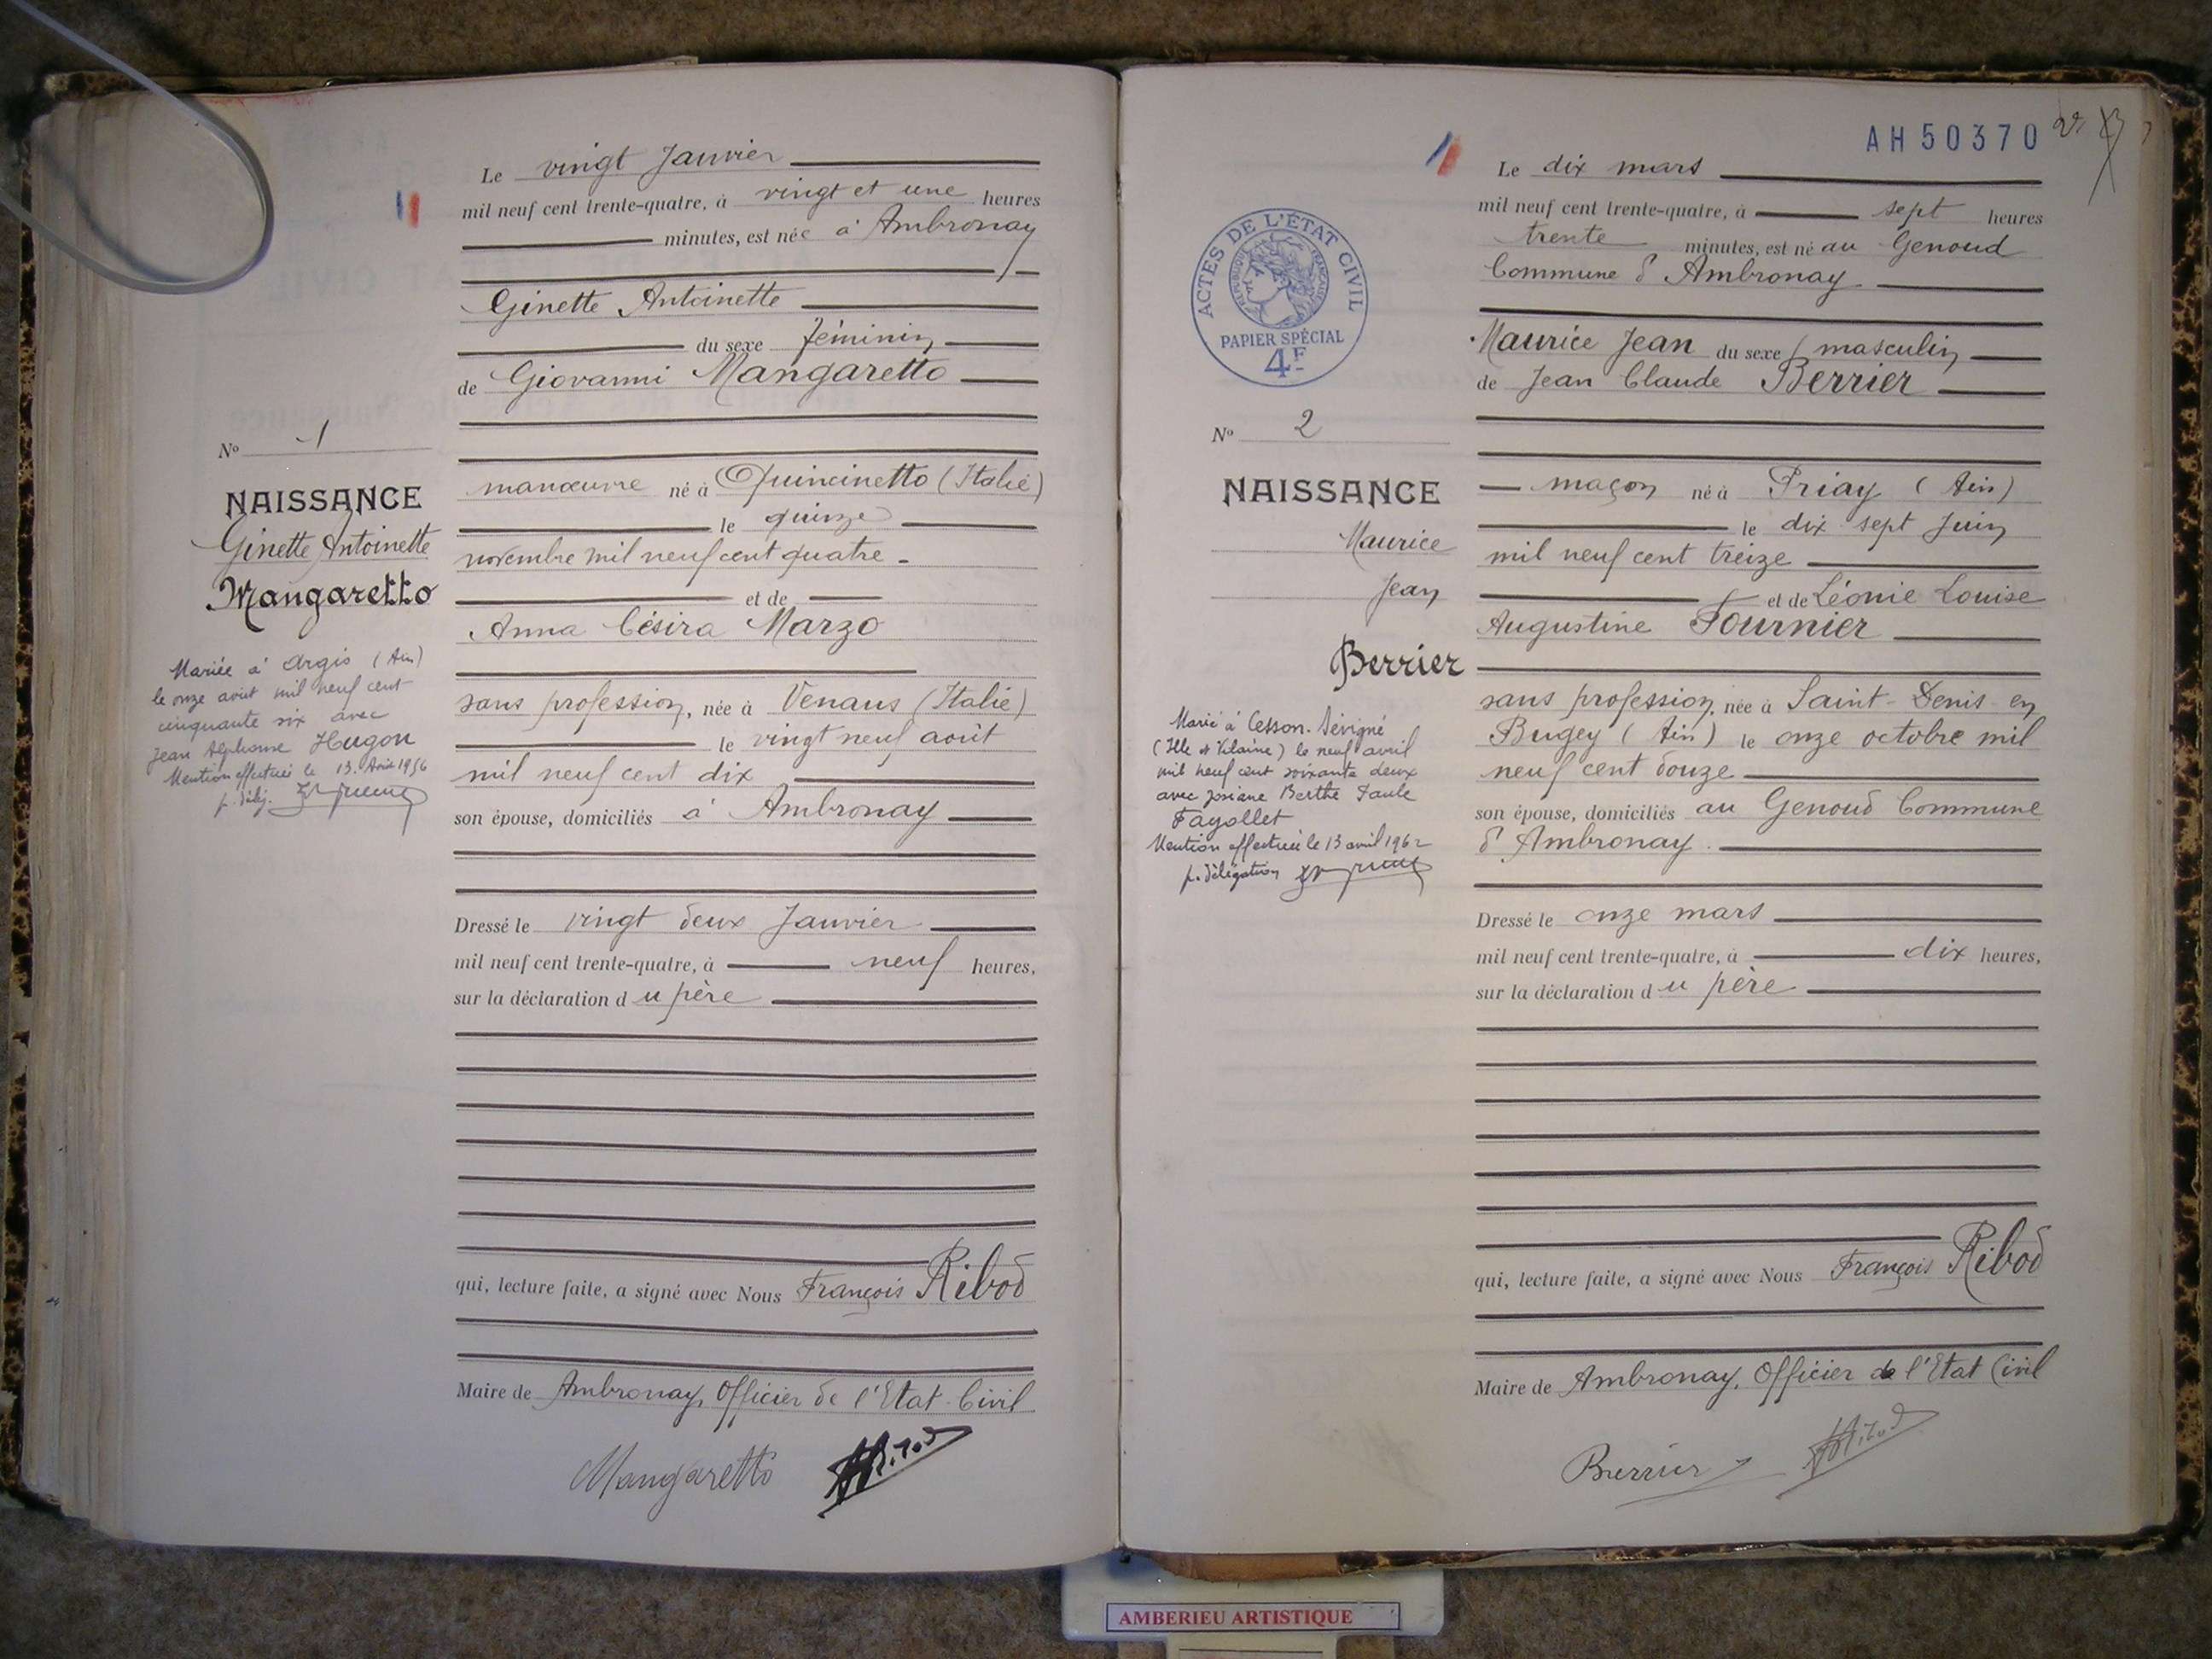 Le vingt Janvier
mil neuf cent trente-quatre, à vingt et une heures
minutes, est née à Ambronay
Ginette Antoinette
du sexe féminin
de Giovanni Mangaretto
manœuvre né à Quincinetto (Italie)
le quinze
novembre mil neuf cent quatre
et de
Anna Césira Marzo
sans profession, née à Venaus (Italie)
le vingt neuf août
mil neuf cent dix
son épouse, domiciliés à Ambronay
Dressé le vingt deux Janvier
mil neuf cent trente-quatre, à neuf heures,
sur la déclaration du père
qui, lecture faite, a signé avec Nous François Ribod
Maire de Ambronay, Officier de l'Etat Civil
Mangaretto
Ribod
N° 1
NAISSANCE
Ginette Antoinette
Mangaretto
Mariée à Argis (Ain)
le onze août mil neuf cent
cinquante six avec
Jean Alphonse Hugon
Mention effectuée le 13 Août 1956
p. délég.
AH50370
Le dix mars
mil neuf cent trente-quatre, à sept heures
trente minutes, est né au Genoud
Commune d'Ambronay
Maurice Jean du sexe masculin
de Jean Claude Berrier
maçon né à Priay (Ain)
le dix sept Juin
mil neuf cent treize
et de Léonie Louise
Augustine Fournier
sans profession, née à Saint-Denis en
Bugey (Ain) le onze octobre mil
neuf cent douze
son épouse, domiciliés au Genoud Commune
d'Ambronay.
Dressé le onze mars
mil neuf cent trente-quatre, à dix heures,
sur la déclaration du père
qui, lecture faite, a signé avec Nous François Ribod
Maire de Ambronay, Officier de l'Etat Civil
Berrier
Ribod
ACTES DE L'ÉTAT CIVIL
RÉPUBLIQUE FRANÇAISE
PAPIER SPÉCIAL
4F
N° 2
NAISSANCE
Maurice
Jean
Berrier
Marié à Cesson-Sévigné
(Ille et Vilaine) le neuf avril
mil neuf cent soixante deux
avec Josiane Berthe Paule
Fayollet
Mention effectuée le 13 avril 1962
p. délégation
AMBERIEU ARTISTIQUE